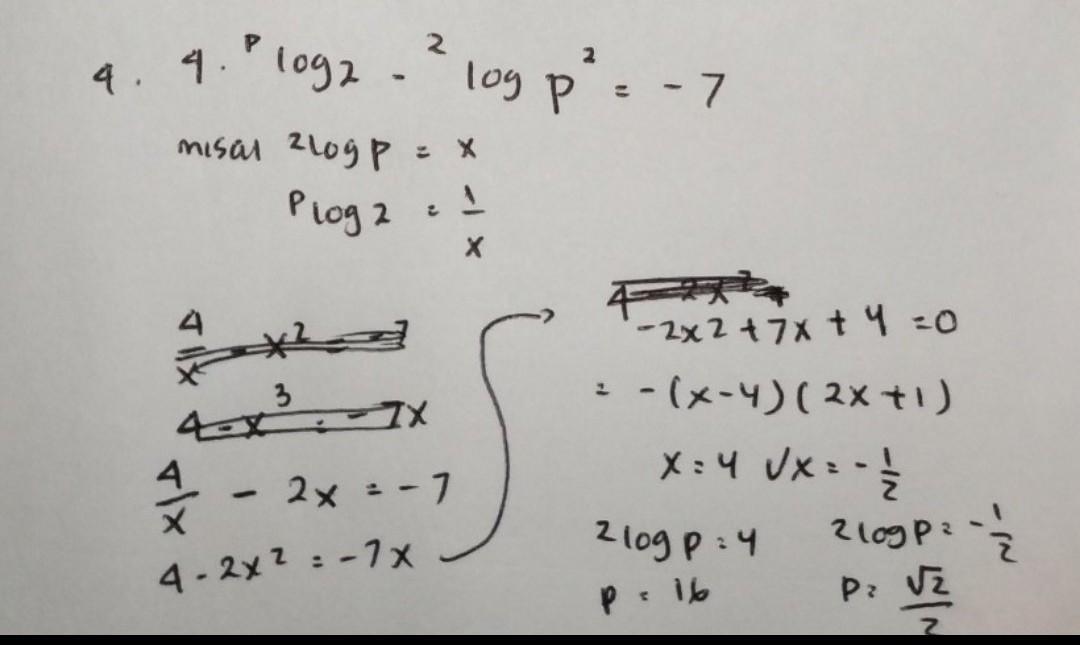 4. 4. ᵖlog 2 - ²log p² = -7
misal ²log p = x
ᵖlog 2 = 1/x
4/x - x² = -7
4 - x³ = -7x
4/x - 2x = -7
4 - 2x² = -7x
-2x2 + 7x + 4 = 0
= -(x-4)(2x+1)
x = 4 ∨ x = -1/2
²log p = 4 ²log p = -1/2
p = 16 p = √2/2